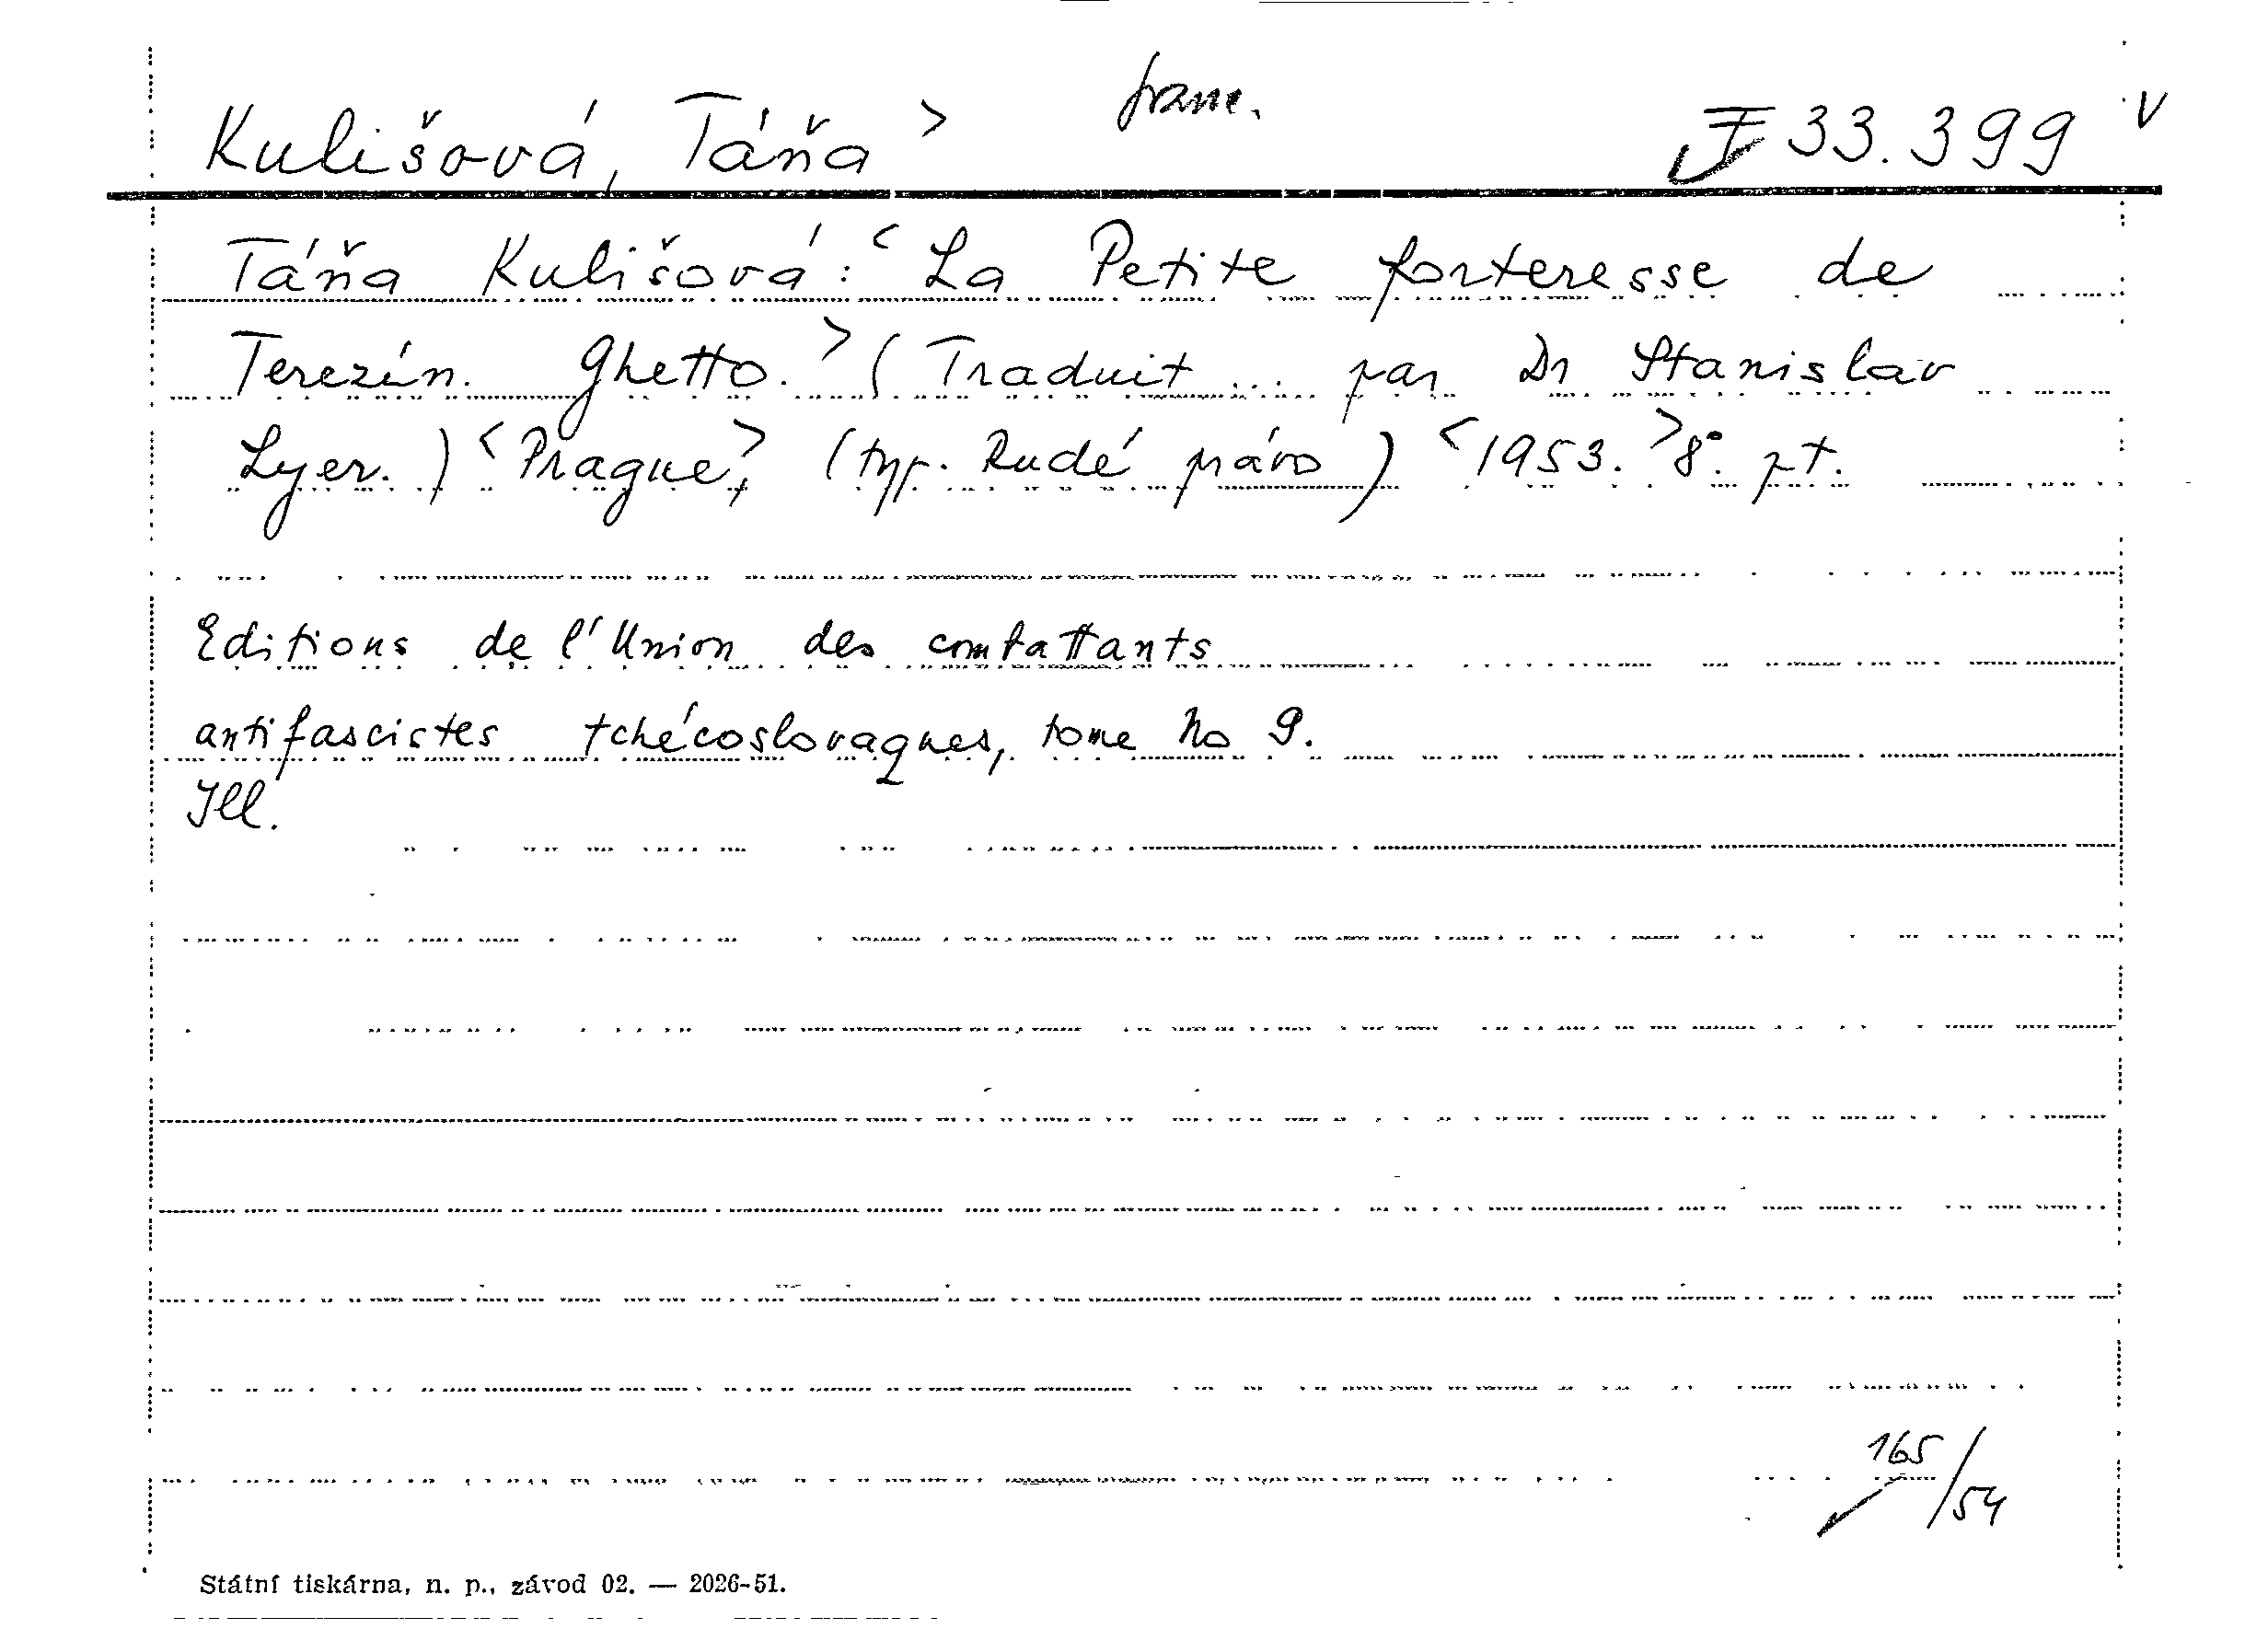 franc.
Kulišová, Táňa > F 33.399 v
Táňa Kulišová: < La Petite forteresse de
Terezín. Ghetto. > (Traduit ... par Dr Stanislav
Lyer.) < Prague, > (typ. Rudé právo) < 1953. > 8°. pt.
Editions de l'Union des combattants
antifascistes tchécoslovaques, tome No 9.
Ill.
165/54
Státní tiskárna, n. p., závod 02. — 2026-51.